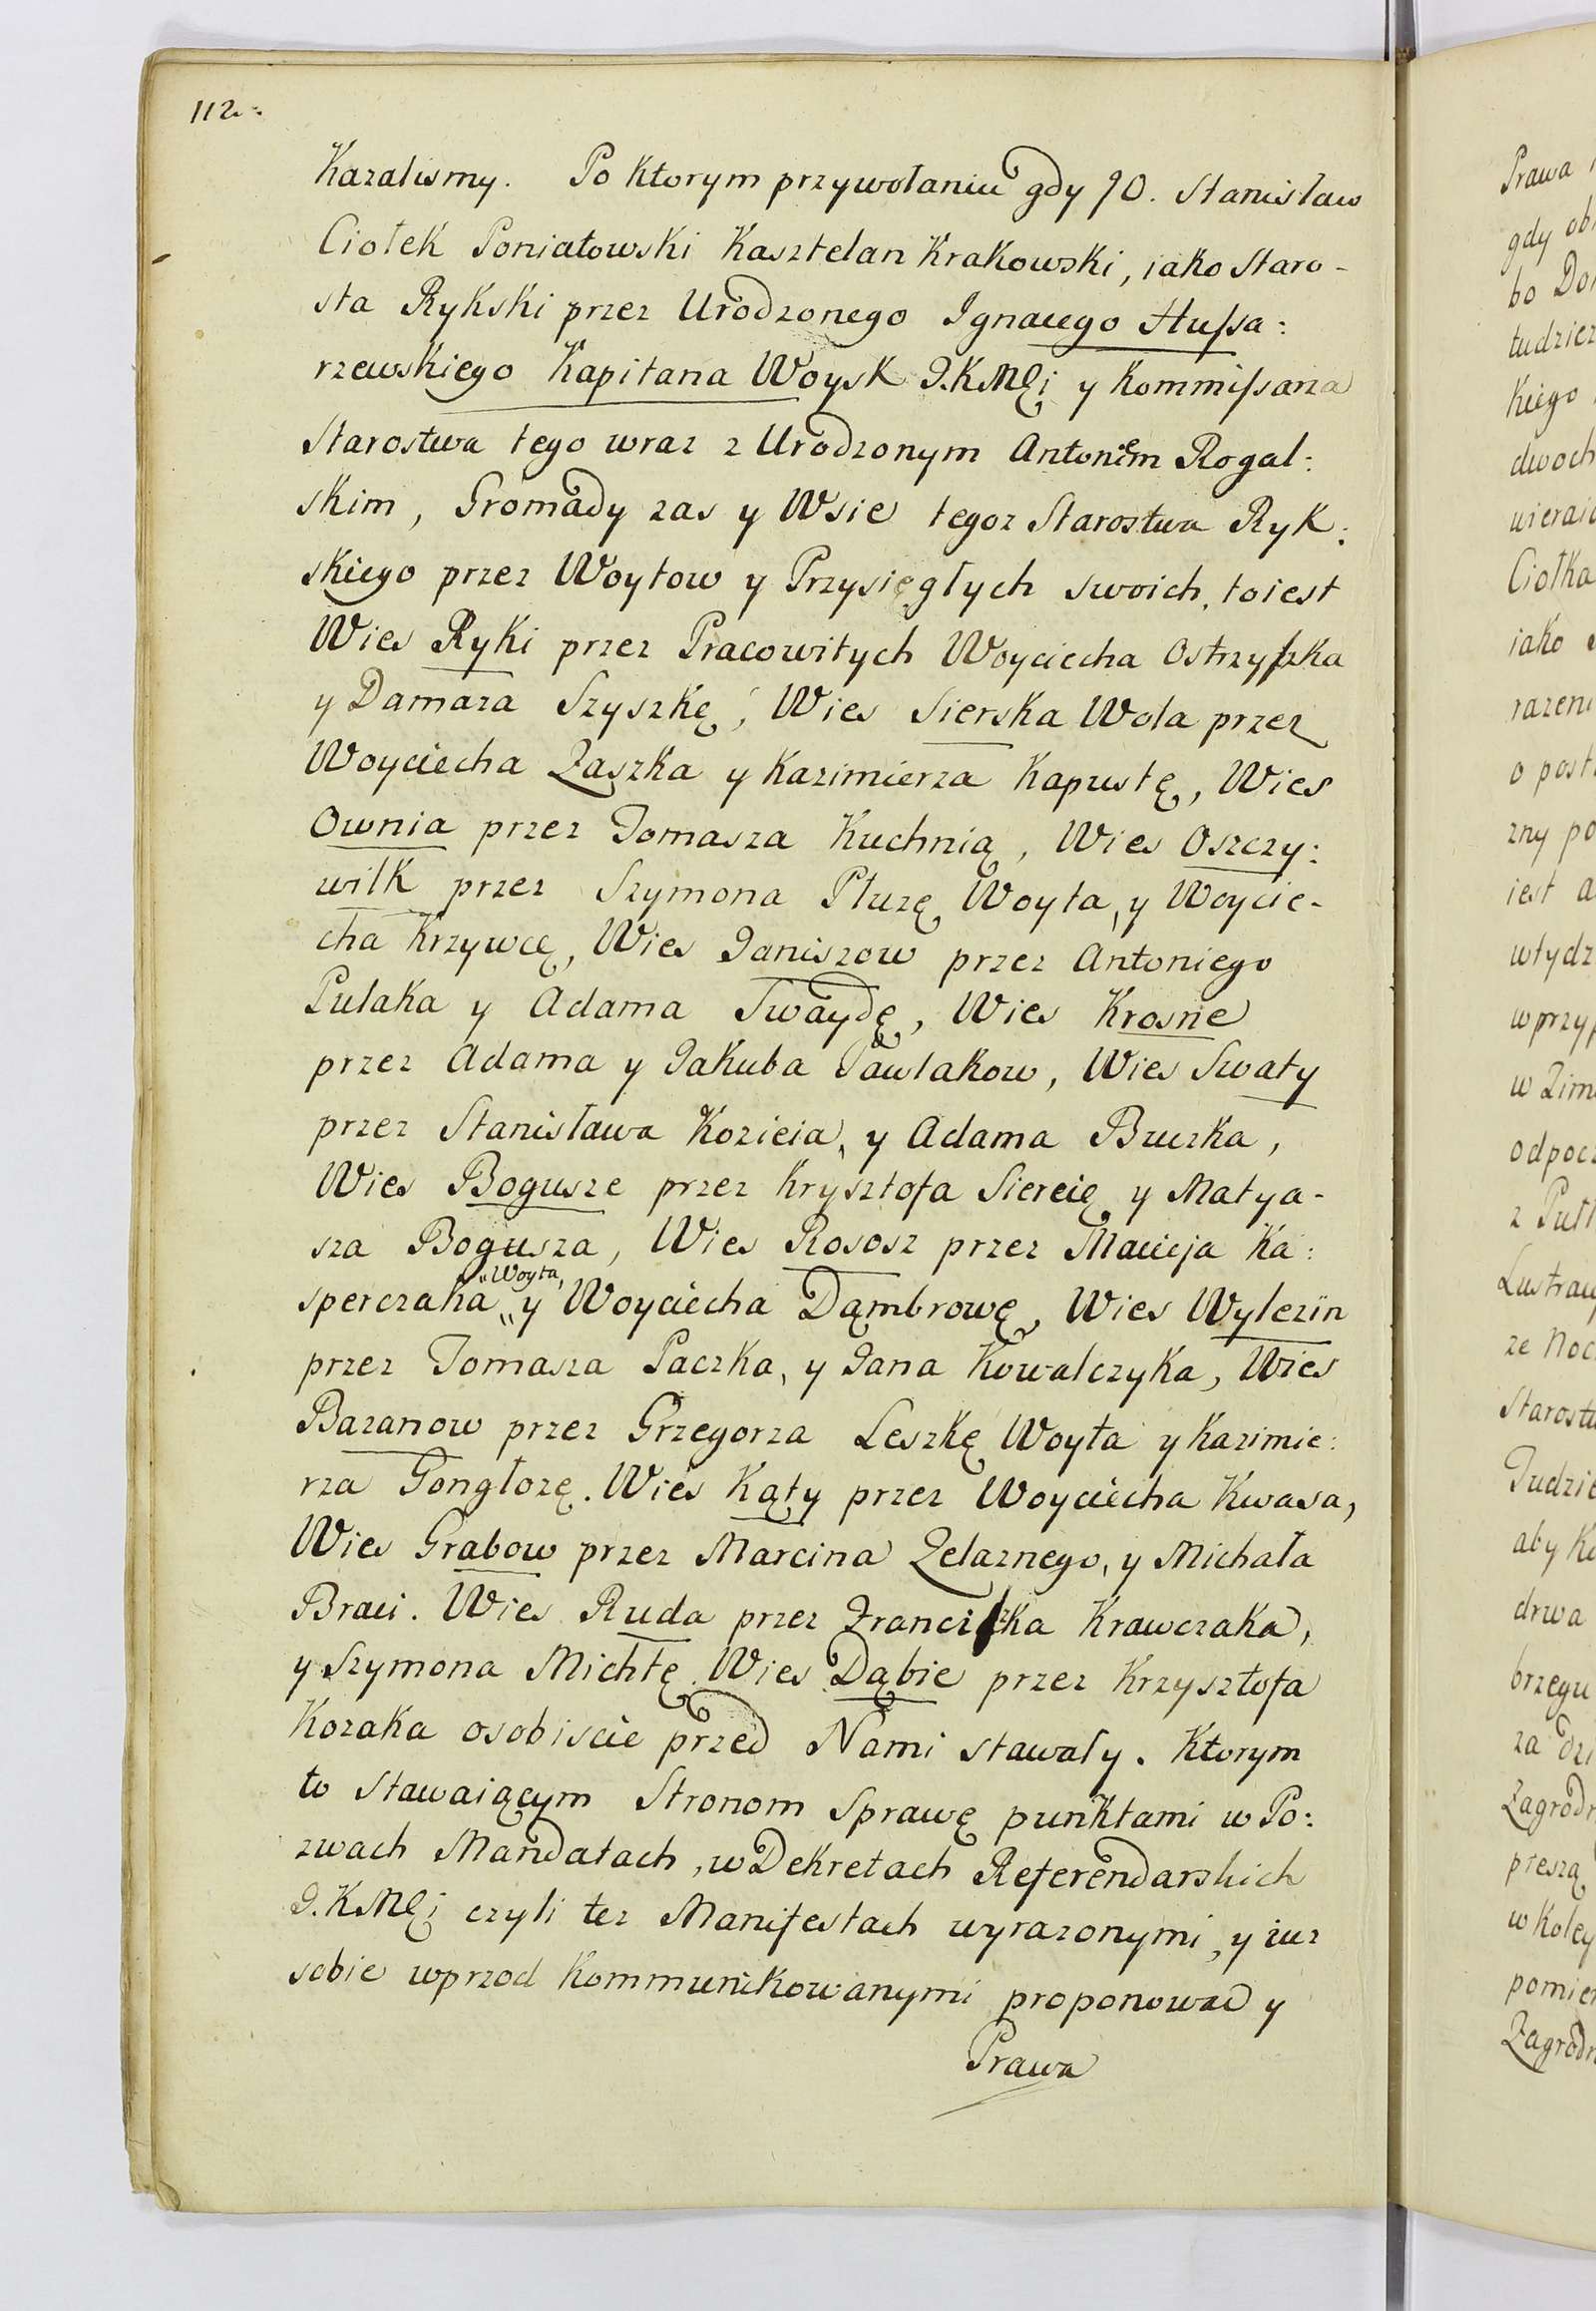 112.
Kazalismy. Po ktorym przywołaniu gdy JO. Stanisław
Ciołek Poniatowski Kasztelan Krakowski, iako Staro-
sta Rykski przez Urodzonego Ignacego Hussa:
rzewskiego Kapitana Woysk J.KMci y Kommissarza
Starostwa tego wraz z Urodzonym Antonim Rogal:
skim, Gromady zas y Wsie tegoz Starostwa Ryk:
skiego przez Woytow y Przysięgłych swoich, toiest
Wies Ryki przez Pracowitych Woyciecha Ostrzyszka
y Damaza Szyszkę, Wies Sierska Wola przez
Woyciecha Zaszka y Kazimierza Kapustę, Wies
Ownia przez Tomasza Kuchnią, Wies Oszczy:
wilk przez Szymona Płuzę Woyta, y Woycie-
cha Krzywcę, Wies Janiszow przez Antoniego
Pułaka y Adama Twaydę, Wies Krosne
przez Adama y Jakuba Pawlakow, Wies Swaty
przez Stanisława Kozieia, y Adama Bruzka,
Wies Bogusze przez Krysztofa Siercię y Matya-
sza Bogusza, Wies Rososz przez Macieja Ka:
sperczaka „Woyta, y Woyciecha Dąmbrowę, Wies Wylezin
przez Tomasza Paczka, y Jana Kowalczyka, Wies
Bazanow przez Grzegorza Leszkę Woyta y Kazimie:
rza Gongłozę. Wies Kąty przez Woyciecha Kwasa,
Wies Grabow przez Marcina Zelaznego, y Michała
Braci. Wies Ruda przez Franciszka Krawczaka,
y Szymona Michtę. Wies Dąbie przez Krzysztofa
Kozaka osobiscie przed Nami stawały. Ktorym
to Stawaiącym Stronom Sprawę punktami w Po:
zwach Mandatach, w Dekretach Referendarskich
J.KMci czyli tez Manifestach wyrazonymi, y iuz
sobie wprzod kommunikowanymi proponować y
Prawa
Prawa
gdy
bo
tudziez
kiego
dwoch
Ciołka
iako
zny
iest
w
odpocz
z
ze
aby
drwa
brzegu
za